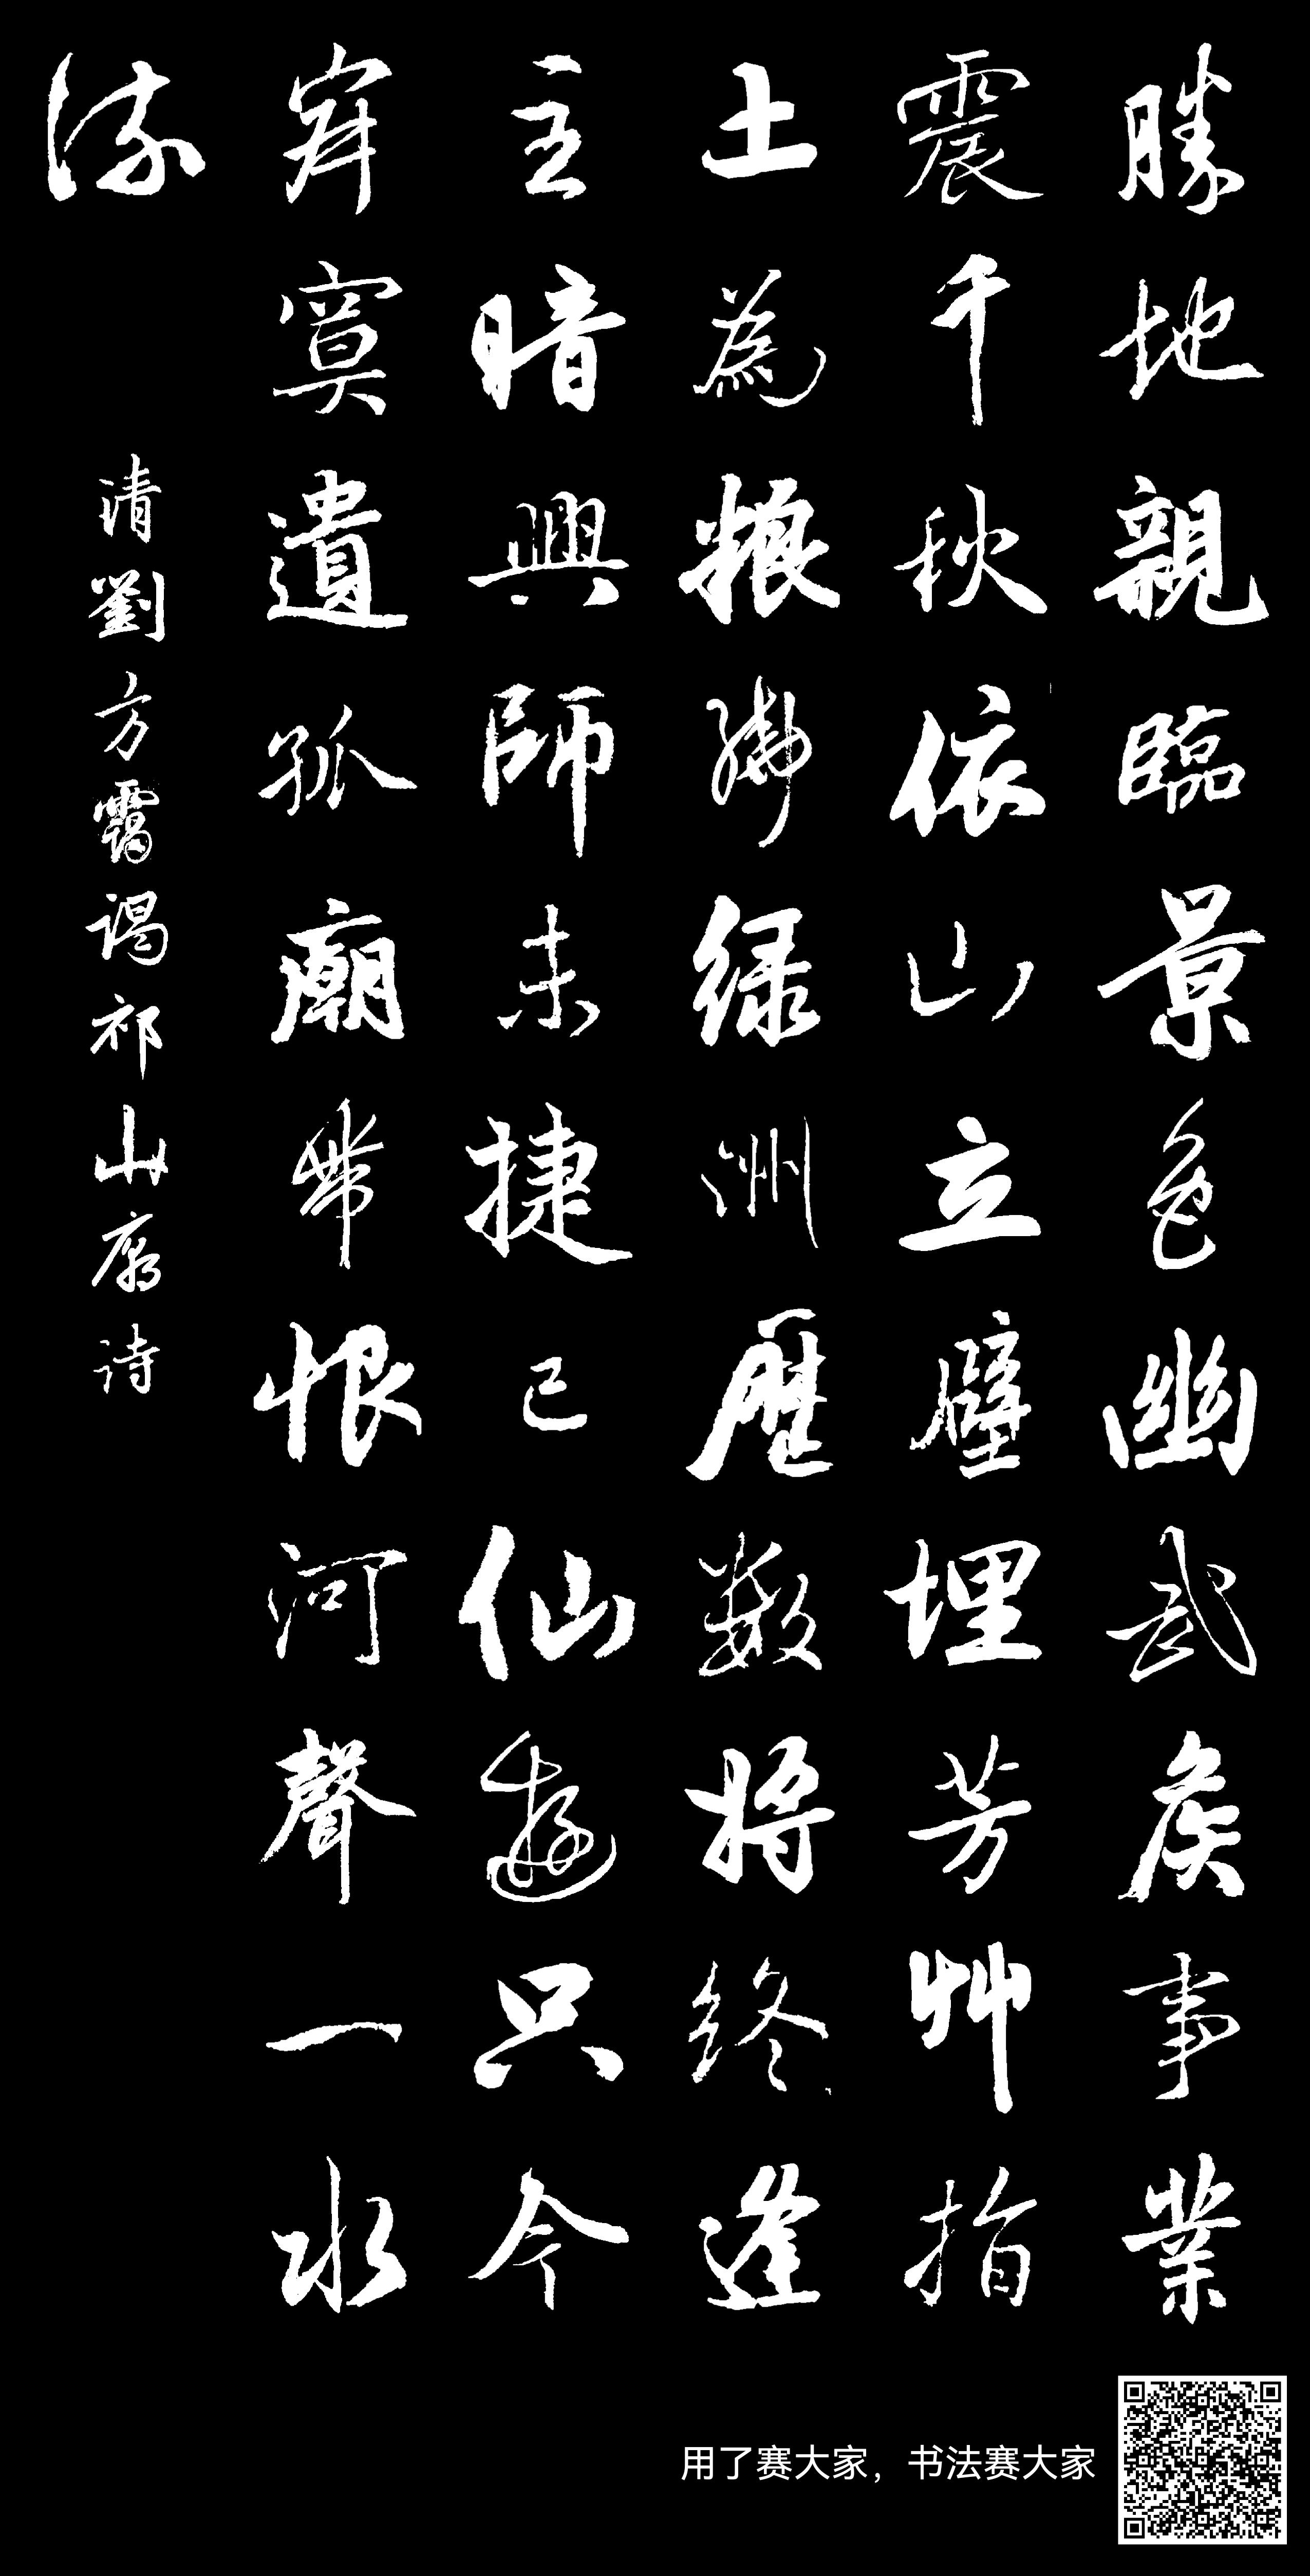 勝地親臨景色幽武矦事業
震千秋依山立壁埋芳艸指
土為粮綠洲歷數將終逢
主暗興師未捷已仙遊只今
寂寞遺孤廟帶恨河聲一水
流
清劉方靄謁祁山廟詩
用了赛大家，书法赛大家